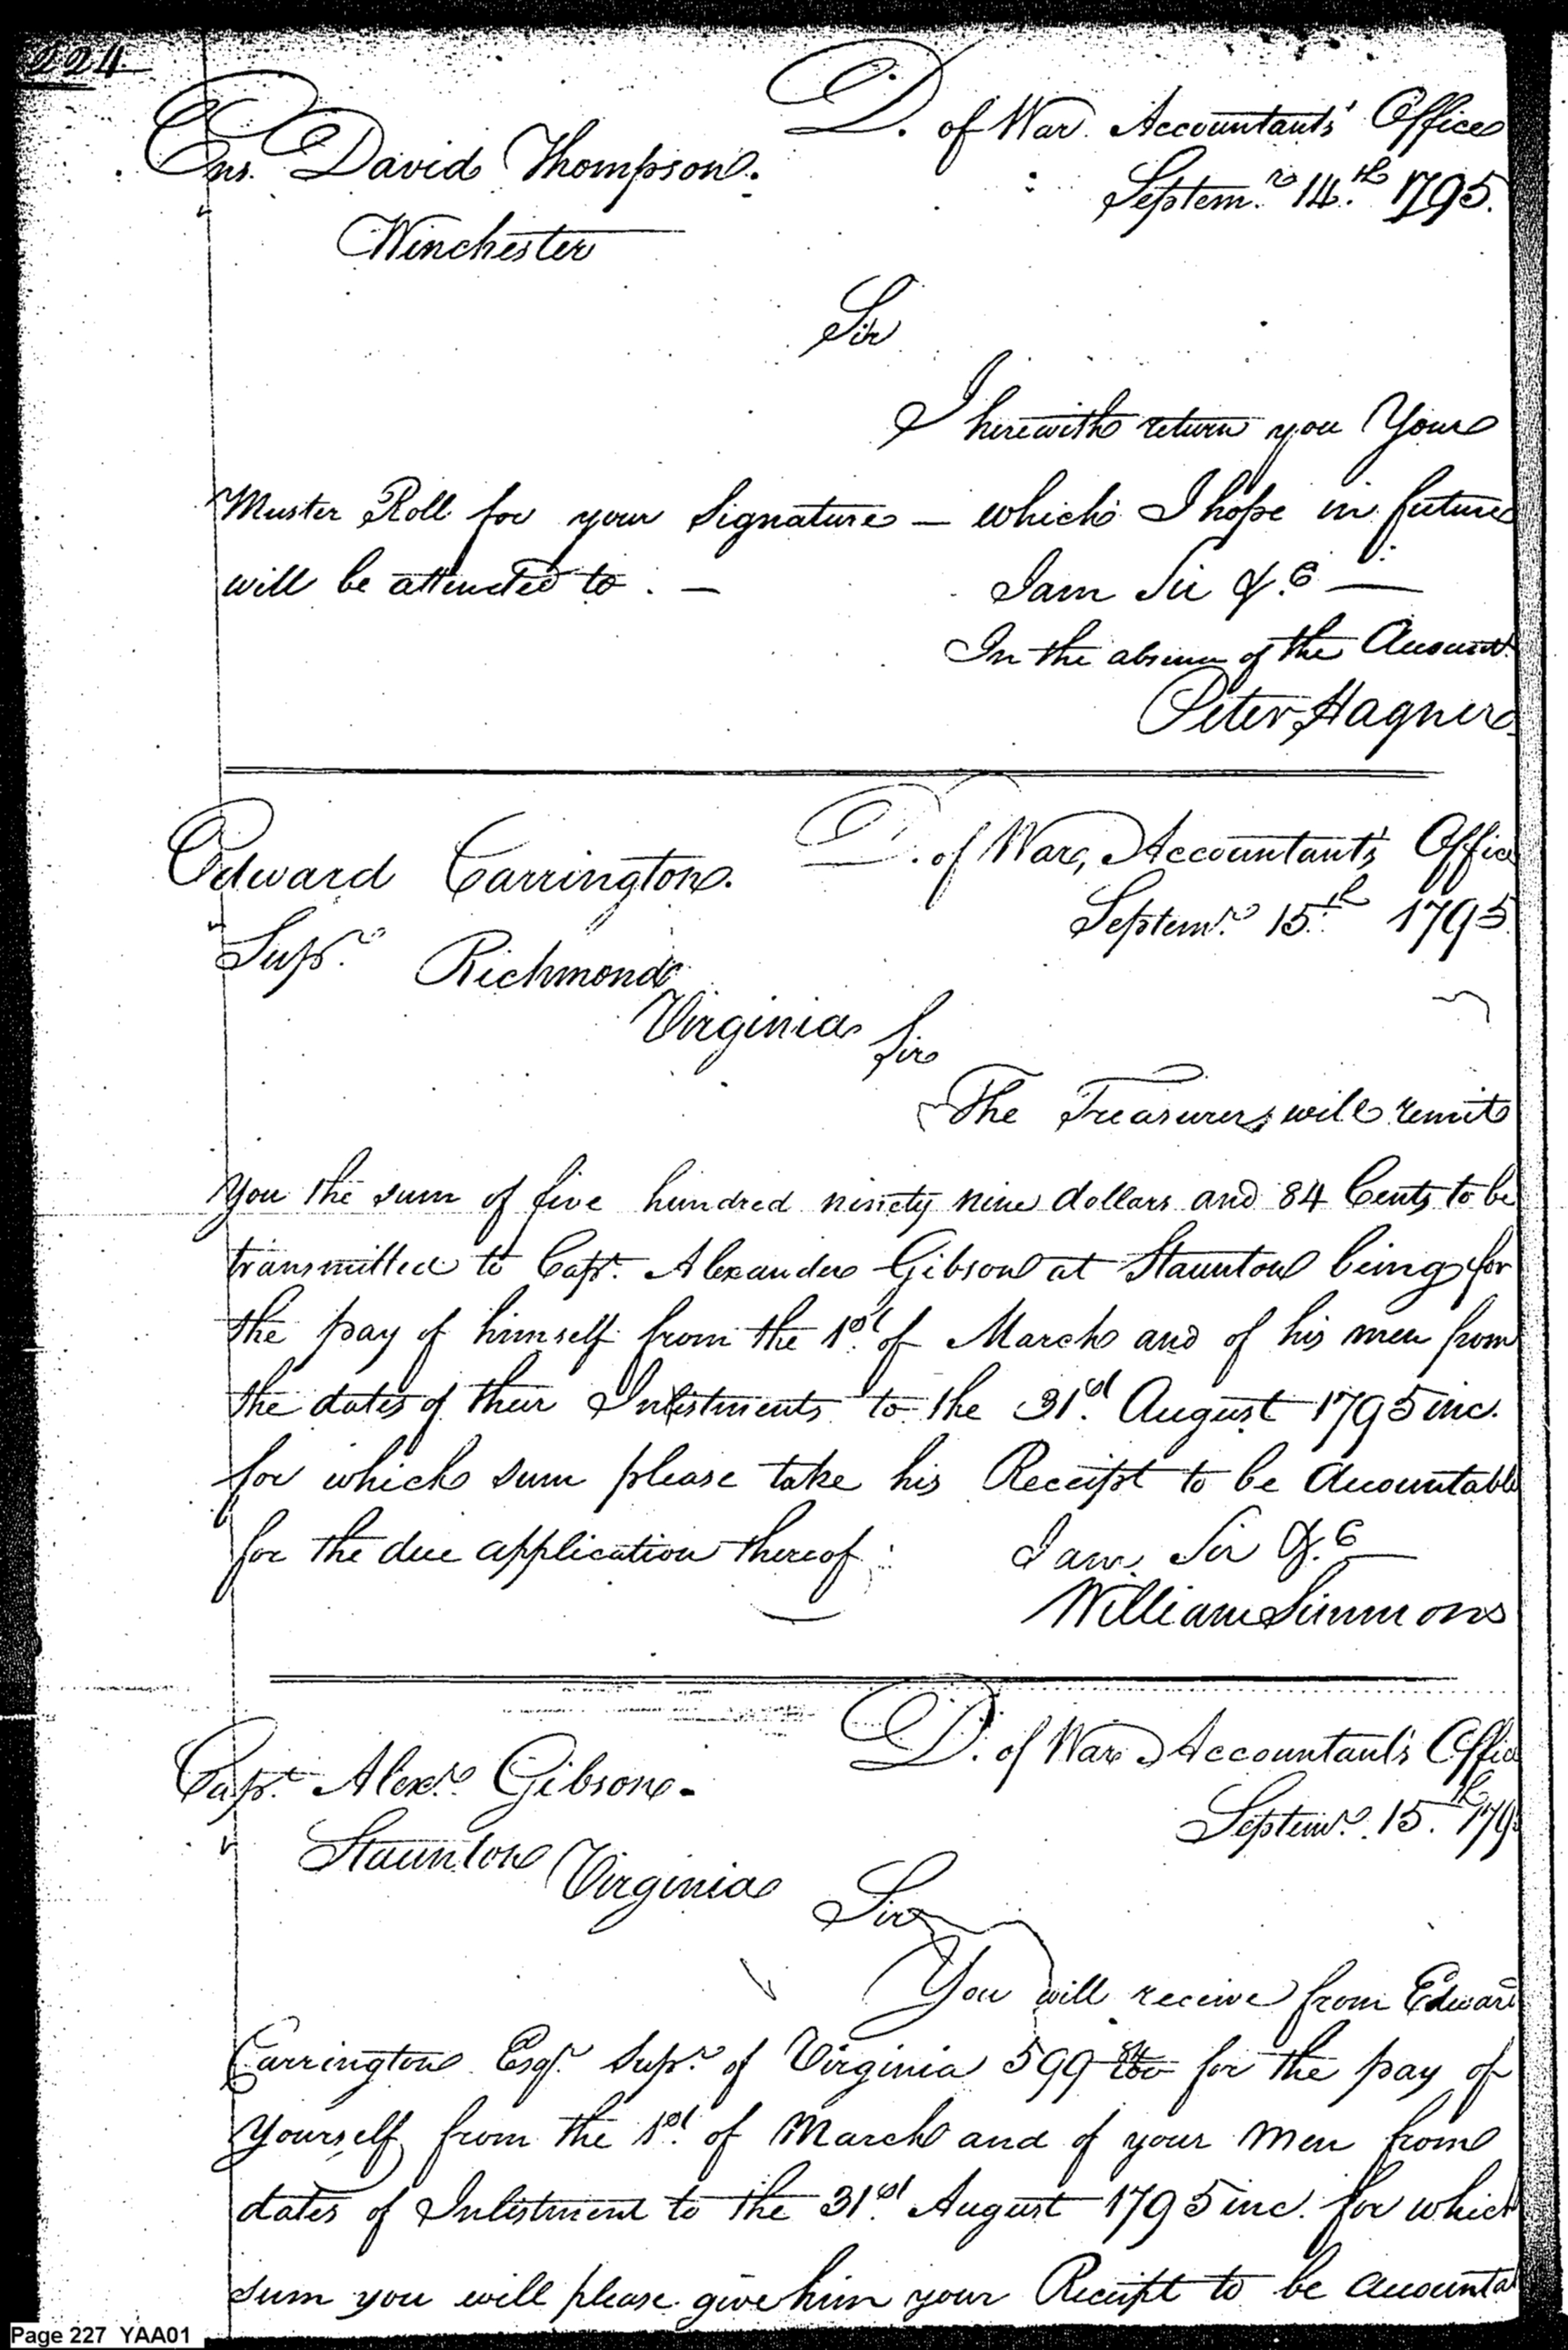 224
D. of War Accountants' Office
Ens. David Thompson.
Septem.r 14.th 1795.
Winchester
Sir
I herewith return you Your
Muster Roll for your Signature — which I hope in future
will be attended to. — I am Sir &.c —
In the absence of the Account.
Peter Hagner
D. of War, Accountant's Offic
Edward Carrington.
Septem.r 15.th 1795
Sup.r Richmond
Virginia Sir
The Treasurer will remit
you the sum of five hundred ninety nine dollars and 84 Cents to be
transmitted to Capt. Alexander Gibson at Staunton being for
the pay of himself from the 1st. of March and of his men from
the dates of their Inlistments to the 31st. August 1795 inc.
for which sum please take his Receipt to be Accountable
for the due application thereof: I am Sir &.c —
William Simmons
D. of War Accountant's Offic
Capt. Alexr. Gibson.
Septemr. 15.th 179
Staunton Virginia
Sir
You will receive from Edward
Carrington Esqr. Supr. of Virginia 599 84/100 for the pay of
Yourself from the 1st. of March and of your Men from
dates of Inlistment to the 31st. August 1795 inc. for which
sum you will please give him your Receipt to be accounta
Page 227 YAA01